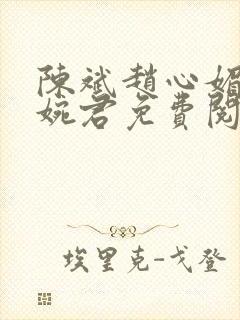 陳斌趙心媚
婉君免費閱
埃里克-戈登